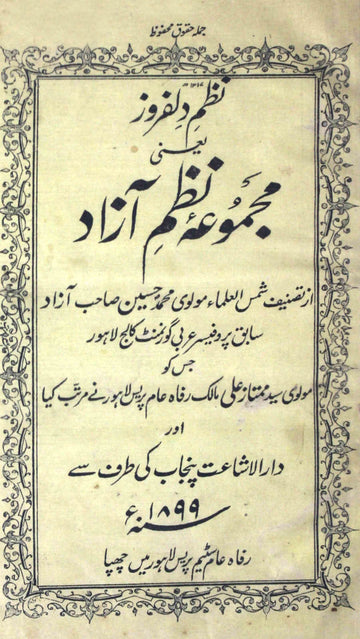 جملہ حقوق محفوظ
نظمِ دلفروز
یعنی
مجموعۂ نظمِ آزاد
از تصنیف شمس العلماء مولوی محمد حسین صاحب آزاد
سابق پروفیسر عربی گورنمنٹ کالج لاہور
جس کو
مولوی سید ممتاز علی مالک رفاہ عام پریس لاہور نے مرتب کیا
اور
دارالاشاعت پنجاب کی طرف سے
سنہ ۱۸۹۹ء
رفاہ عام سٹیم پریس لاہور میں چھپا